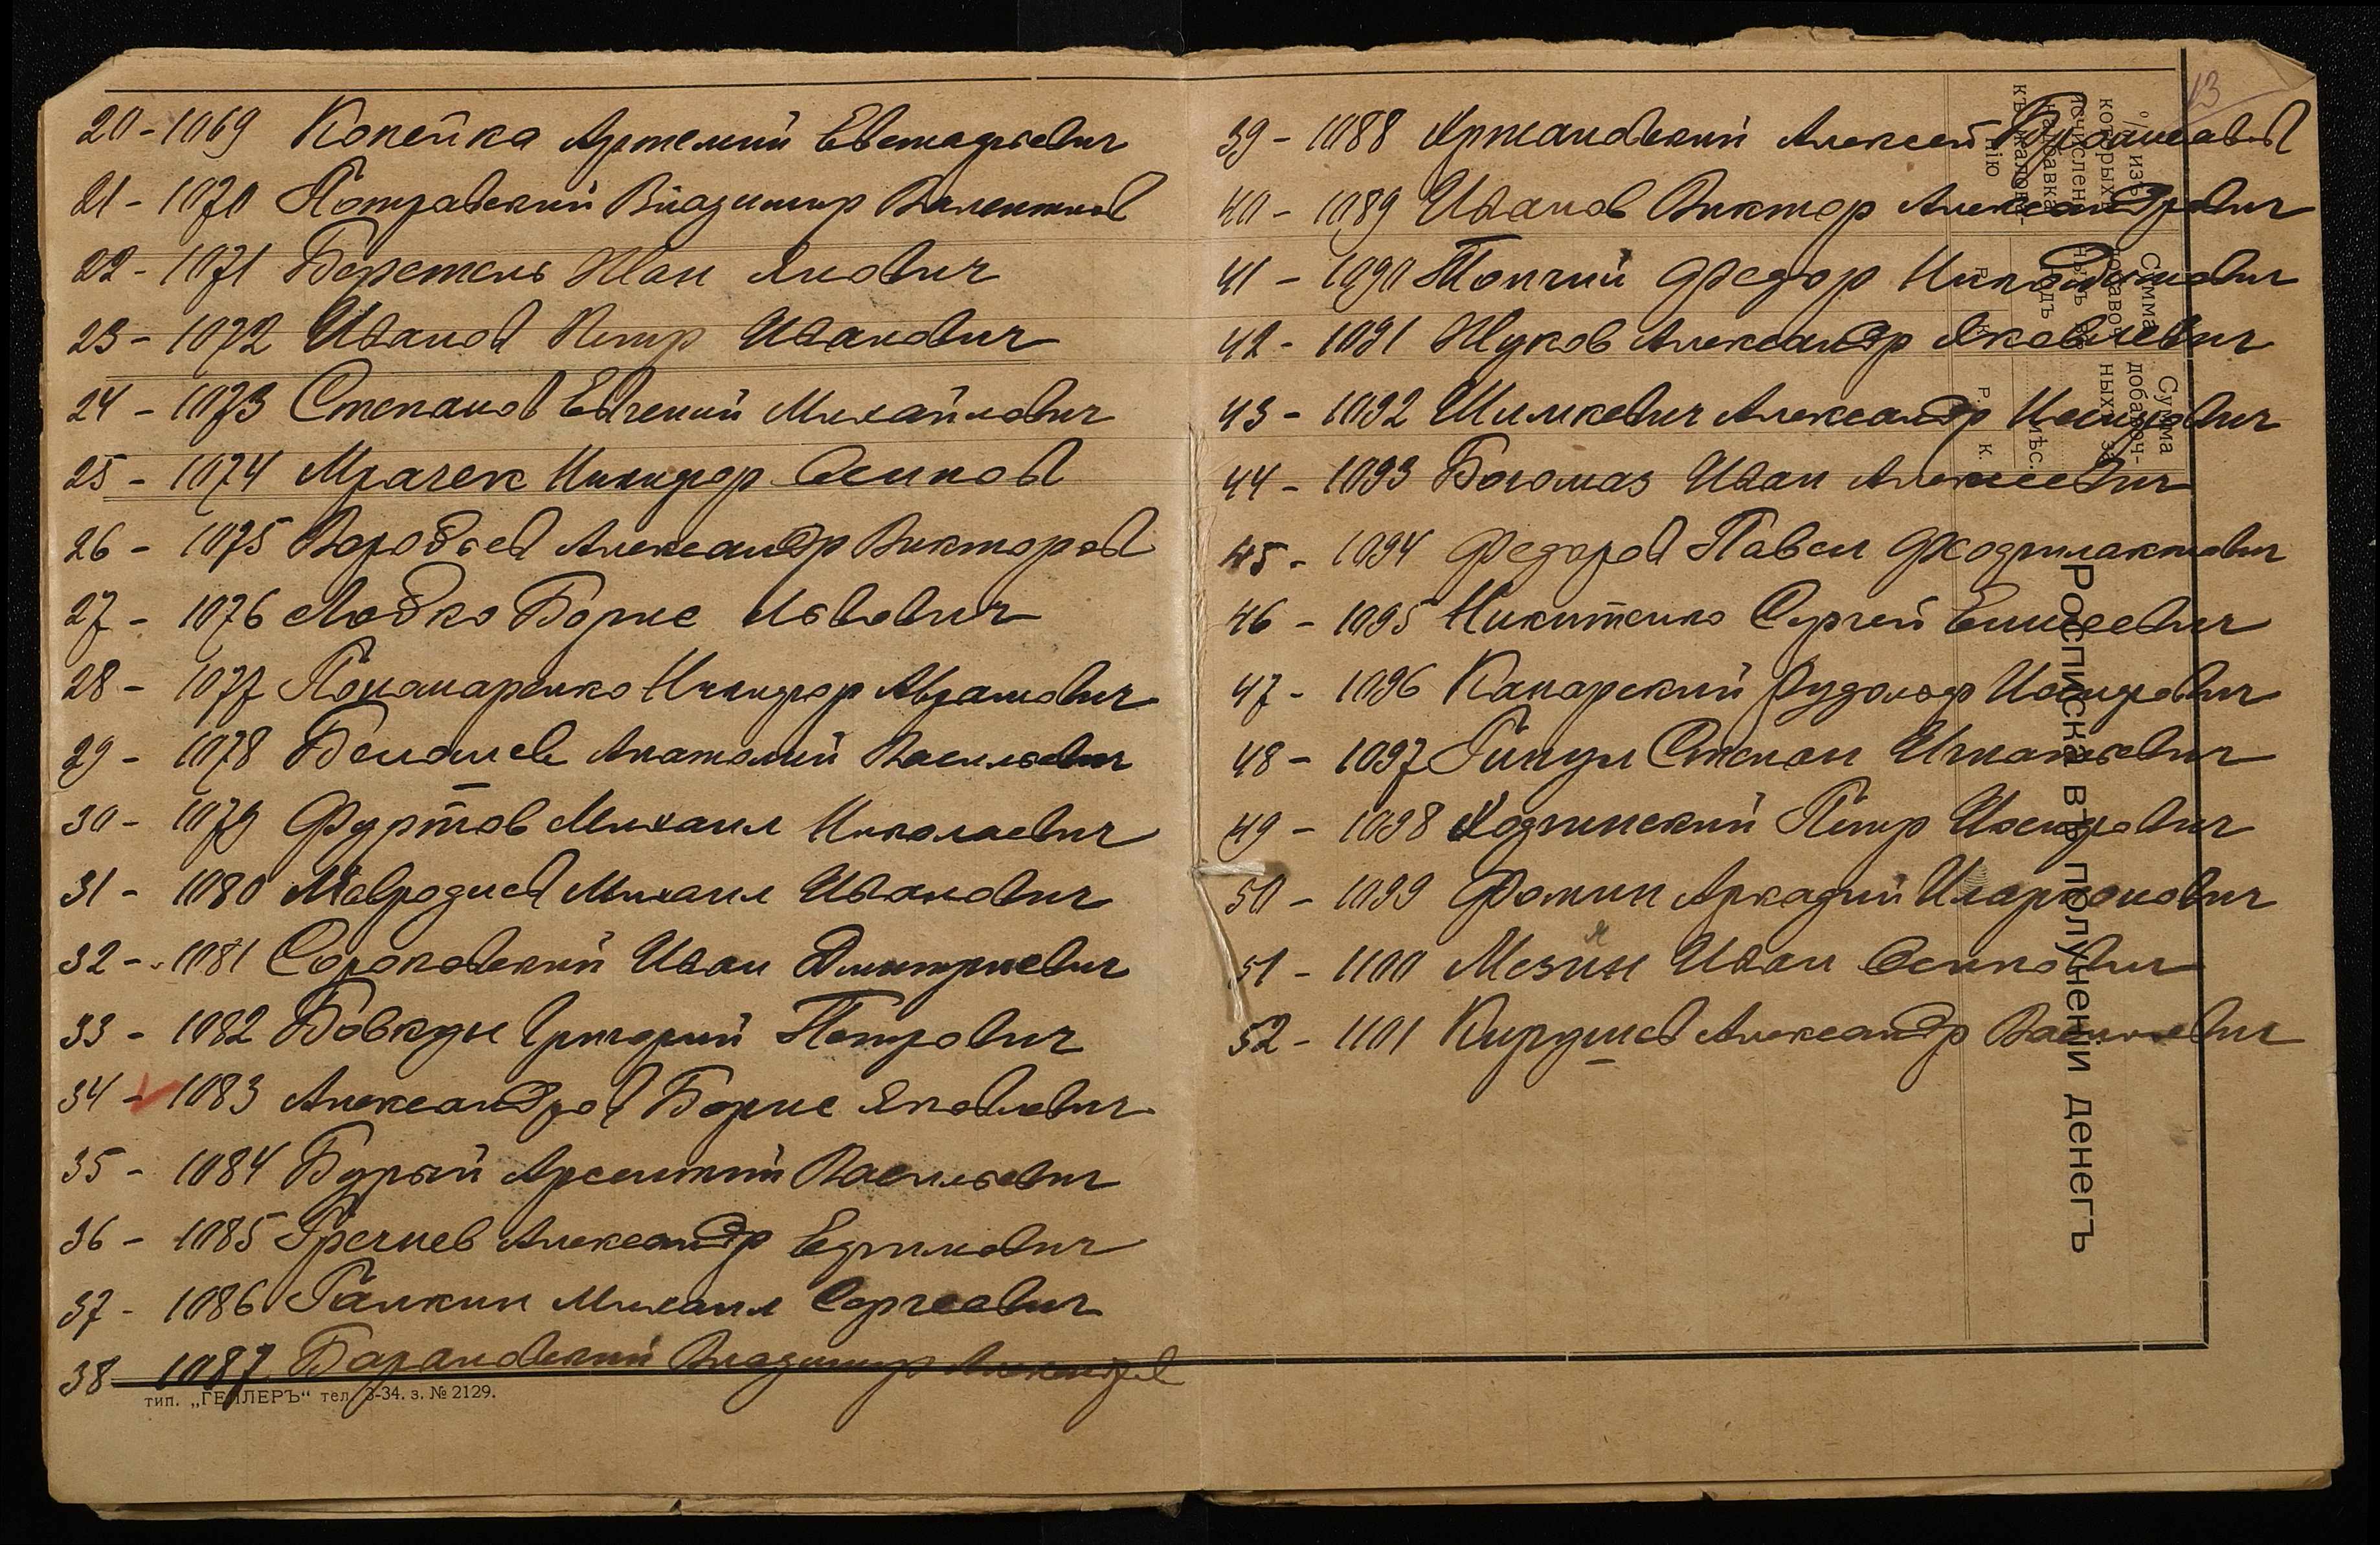 20 - 1069 Копейка Артемий Евстафьевич
21 - 1070 Потравский Владимир Валентинов
22 - 1071 Берестень Иван Янович
23 - 1072 Иванов Петр Иванович
24 - 1073 Степанов Евгений Михайлович
25 - 1074 Мрачек Никифор Осипов
26 - 1075 Воробьев Александр Викторов
27 - 1076 Лобко Борис Львович
28 - 1077 Понамаренко Никифор Абрамович
29 - 1078 Анатолий Васильевич
30 - 1079 Фуртов Михаил Николаевич
31 - 1080 Мавродиев Михаил Иванович
32 - 1081 Сороковский Иван Дмитриевич
33 - 1082 Бовкун Григорий Петрович
34 - 1083 Александров Борис Яковлевич
35 - 1084 Бурый Арсентий Васильевич
36 - 1085 Гречнев Александр Ефимович
37 - 1086 Галкин Михаил Сергеевич
38 1087 Барановский Владимир Александров
тип. „ГЕЙЛЕРЪ“ тел. 3-34. з. № 2129.
13
39 - 1088 Алексей
40 - 1089 Иванов Виктор Александрович
41 - 1090 Топчий Федор Никодимович
42 - 1091 Жуков Александр Яковлевич
43 - 1092 Шимкевич Александр Иосифович
44 - 1093 Богомаз Иван Алексеевич
45 - 1094 Федоров Павел Феофилактович
46 - 1095 Никитенко Сергей Елисеевич
47 - 1096 Канарский Рудольф Иосифович
48 - 1097 Гинул Степан Игнатьевич
49 - 1098 Ходзинский Петр Иосифович
50 - 1099 Фомин Аркадий Иларионович
51 - 1100 Мезин Иван Осипович
52 - 1101 Кирдиев Александр Васильевич
Росписка въ полученіи денегъ